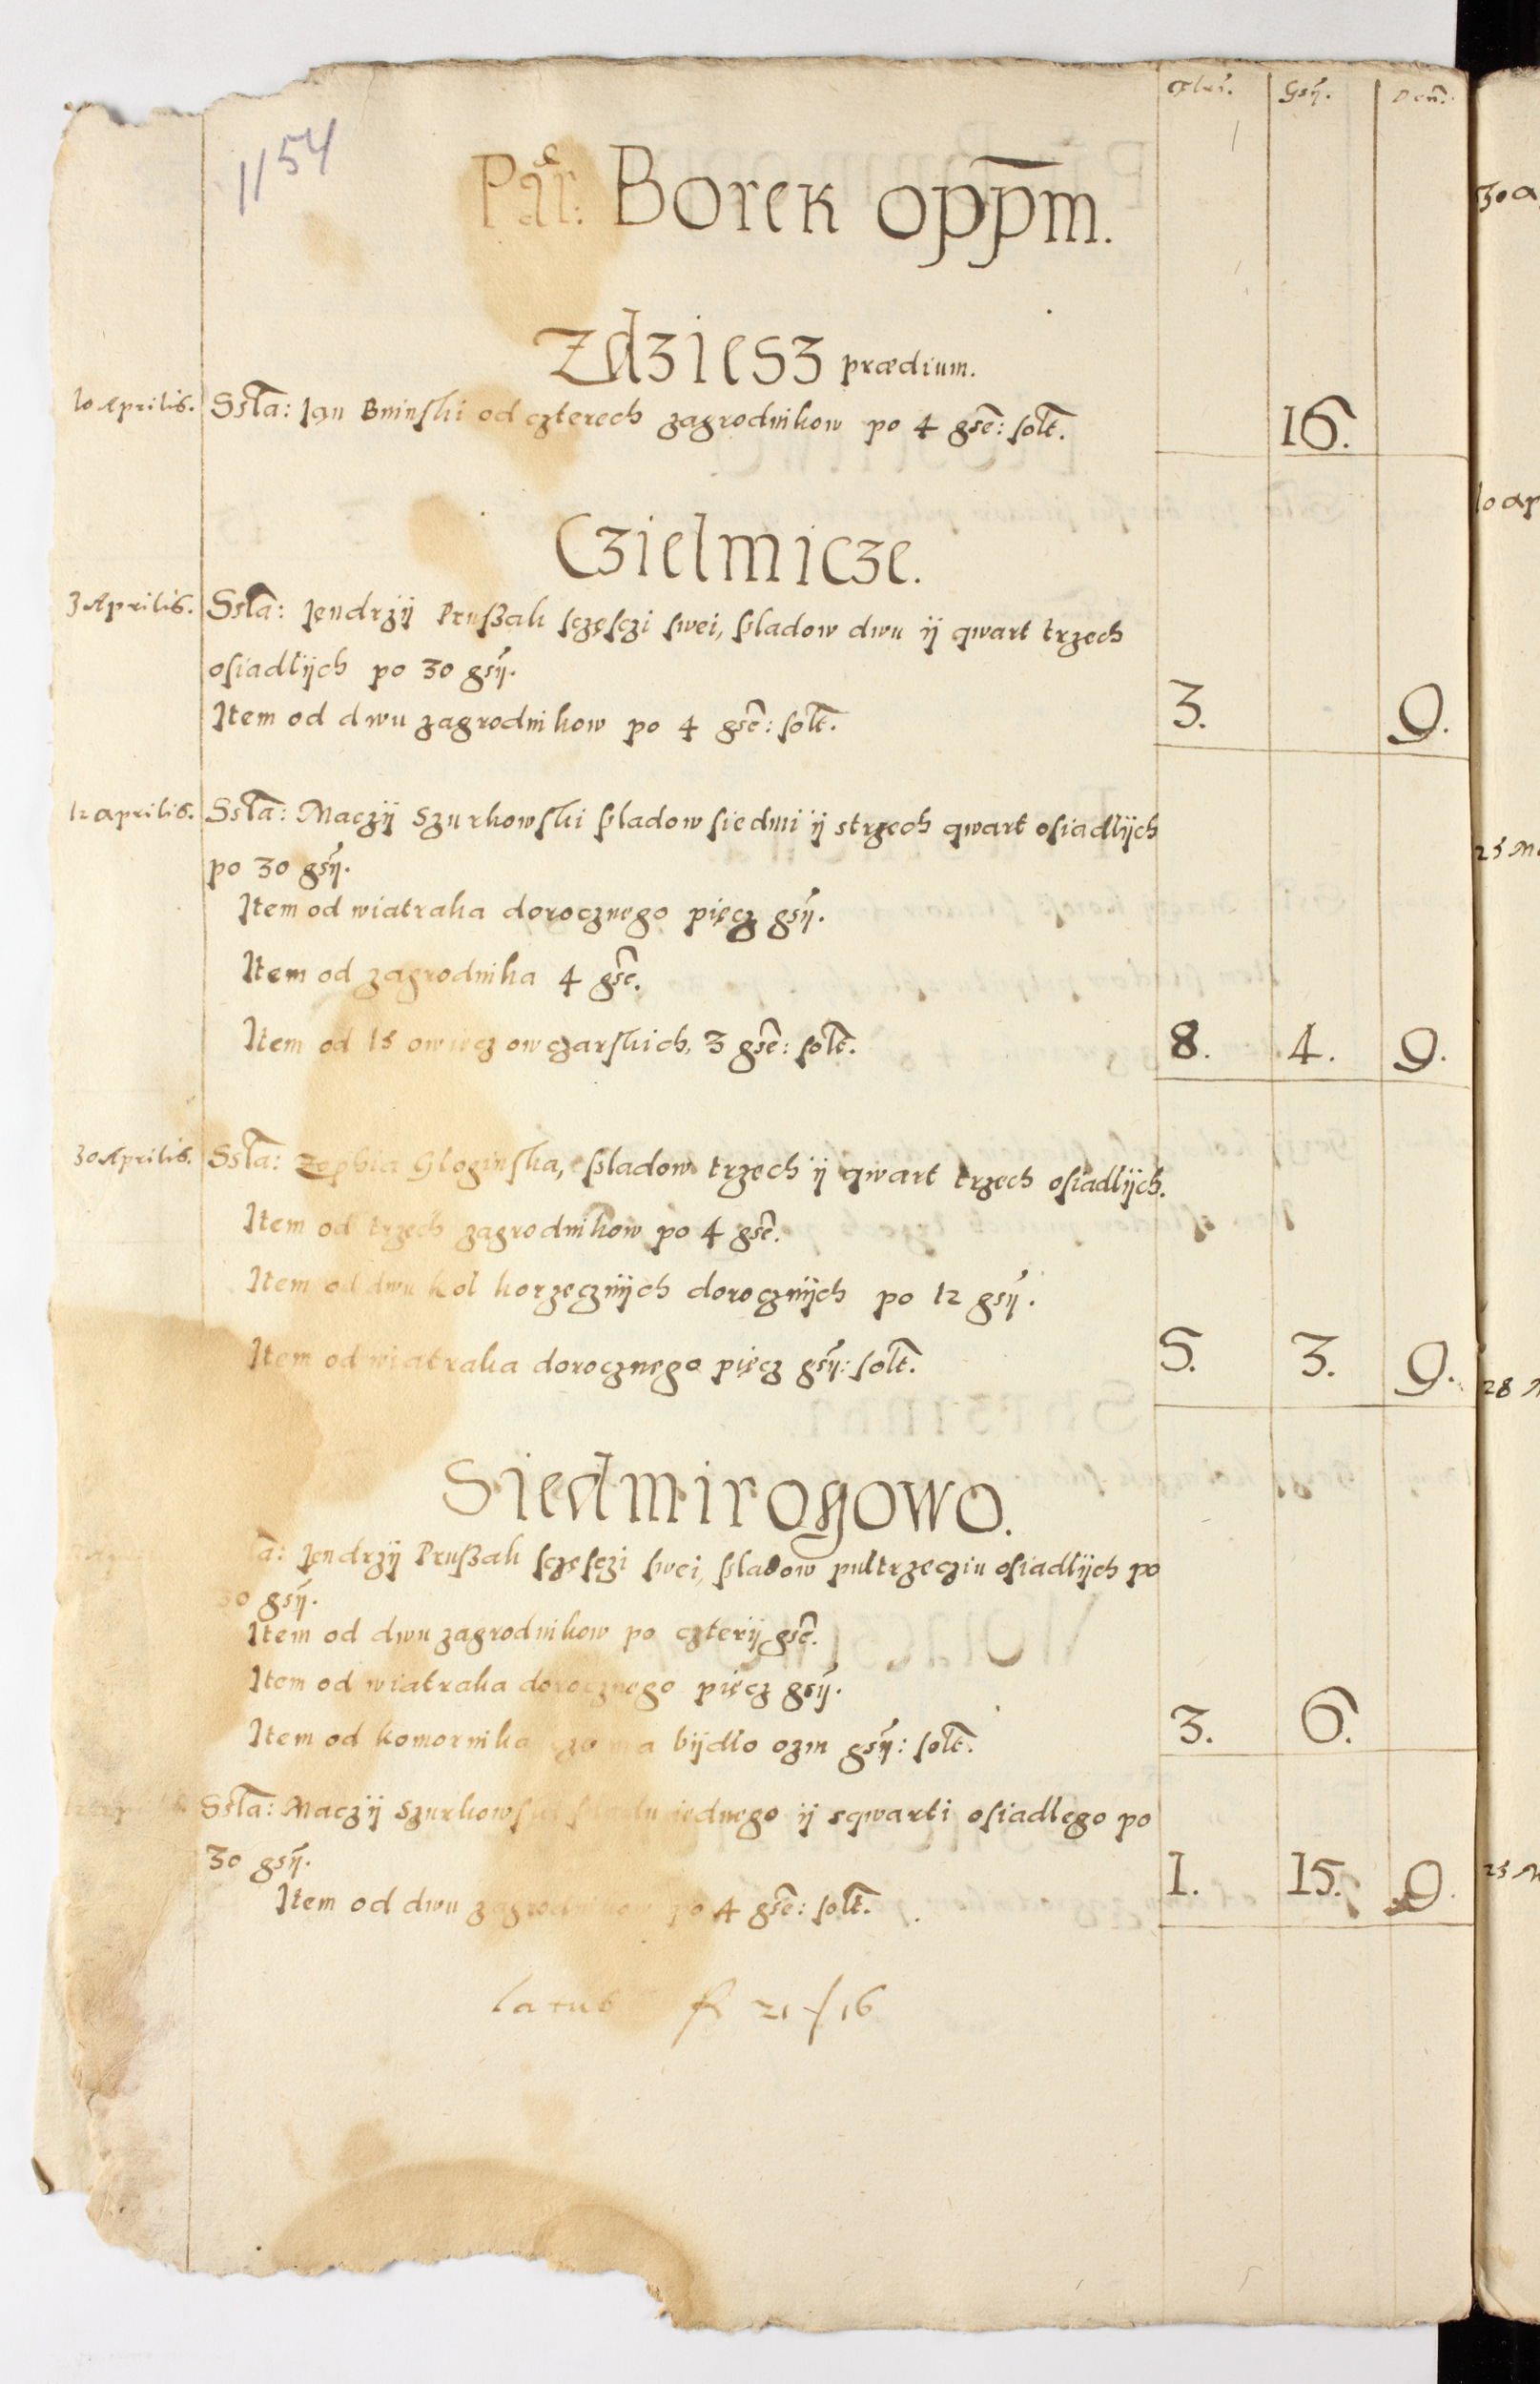 Flor. Gsÿ. Den.
1154
Par: Borek opp̄m.
Zdziesz prædium.
10 Aprilis. Ssła: Jan Bninski od czterech zagrodnikow po 4 gsē: solt. 16.
Czielmicze.
3 Aprilis. Ssła: Jendrzÿ Prußak sczęsczi swei, sladow dwu ÿ qwart trzech
osiadłÿch po 30 gsÿ.
Item od dwu zagrodnikow po 4 gsē: solt. 3. 9.
12 aprilis. Ssła: Maczÿ Szurkowski sladow siedmi ÿ strzech qwart osiadłÿch
po 30 gsÿ.
Item od wiatraka dorocznego pięcz gsÿ.
Item od zagrodnika 4 gsē.
Item od 15 owiecz owczarskich, 3 gsē: solt. 8. 4. 9.
30 Aprilis. Ssła: Zophia Gloginska, sladow trzech ÿ qwart trzech osiadłÿch.
Item od trzech zagrodnikow po 4 gsē.
Item od dwu kol korzecznÿch dorocznÿch po 12 gsÿ.
Item od wiatraka dorocznego pięcz gsÿ: solt. 5. 3. 9.
Siedmirogowo.
ła: Jendrzÿ Prußak sczęsczi swei, sladow pultrzecziu osiadłÿch po
30 gsÿ.
Item od dwu zagrodnikow po czterÿ gsē.
Item od wiatraka dorocznego pięcz gsÿ.
Item od komornika czo ma bÿdło ozm gsÿ: solt. 3. 6.
Ssła: Maczÿ Szurkowski sladu iednego ÿ sqwarti osiadłego po
30 gsÿ.
Item od dwu zagrodnikow po 4 gsē: solt. 1. 15. 9.
latus fl 21 / 16
30 a
10 ap
25 M
28
25